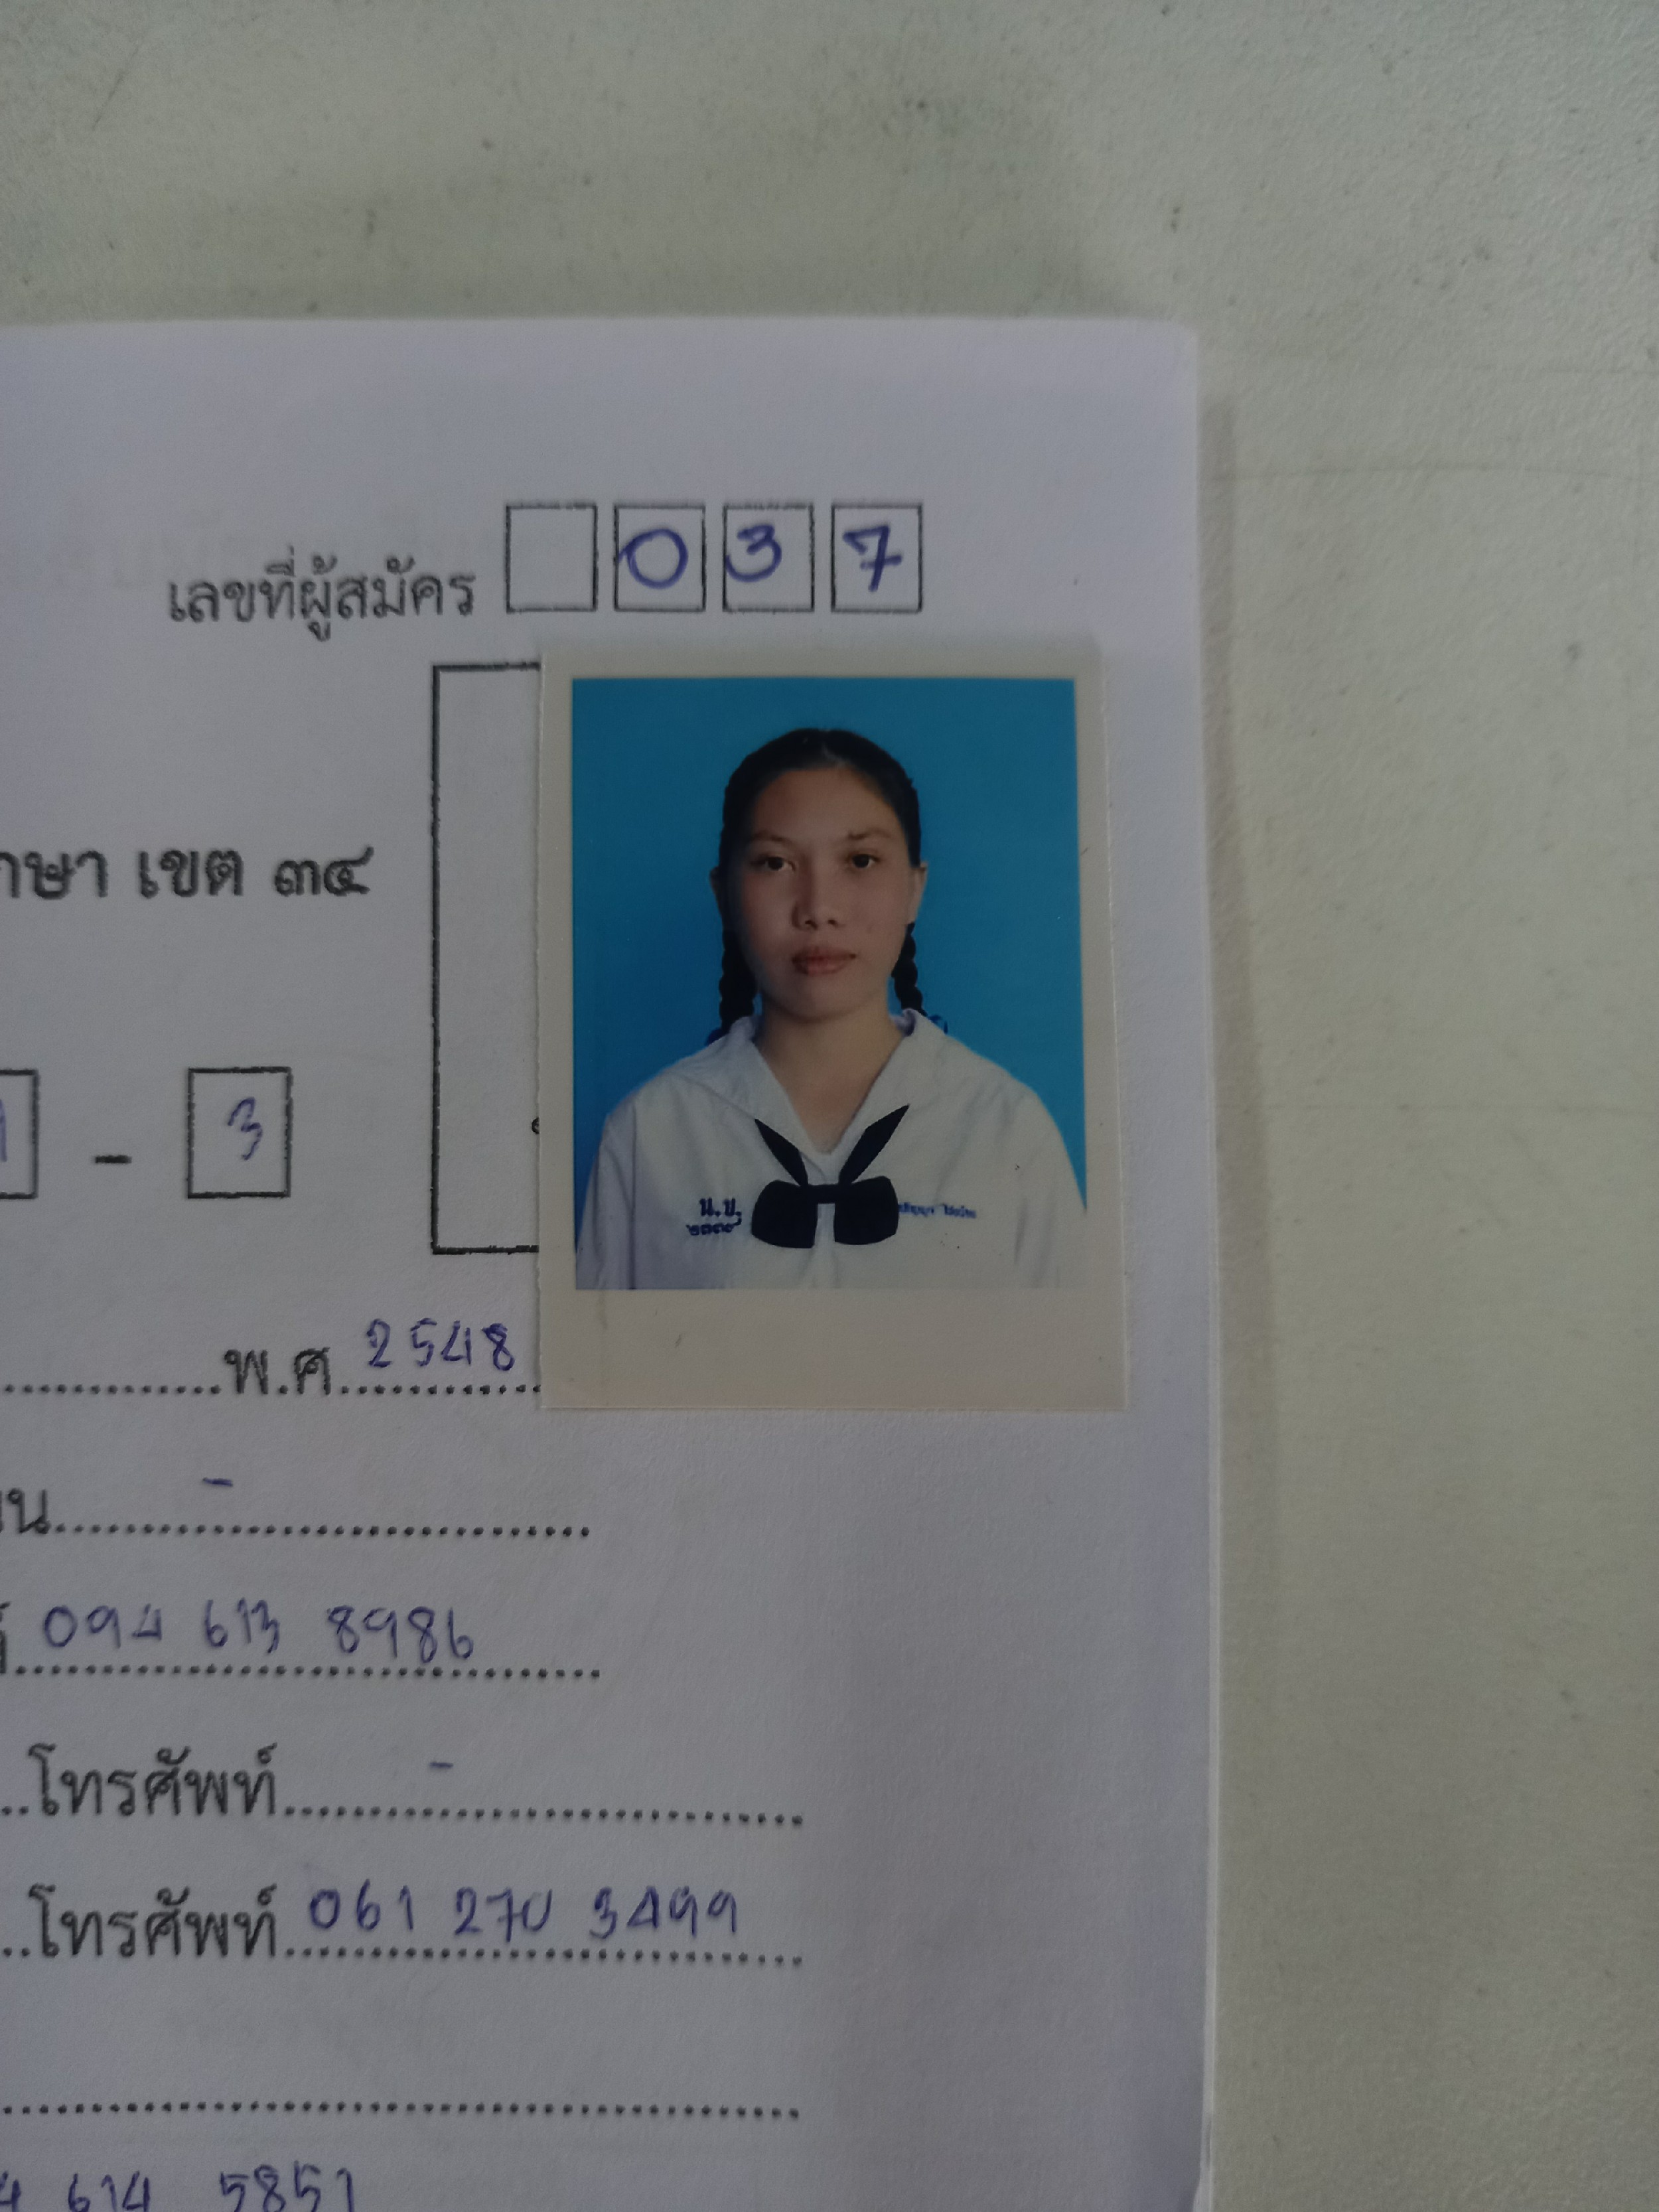 เลขที่ผู้สมัคร 037
กษา เขต ๓๔
- 3
น.ข.
พ.ศ. 2548
น. -
094 613 8986
โทรศัพท์ -
โทรศัพท์ 061 270 3499
614 5851